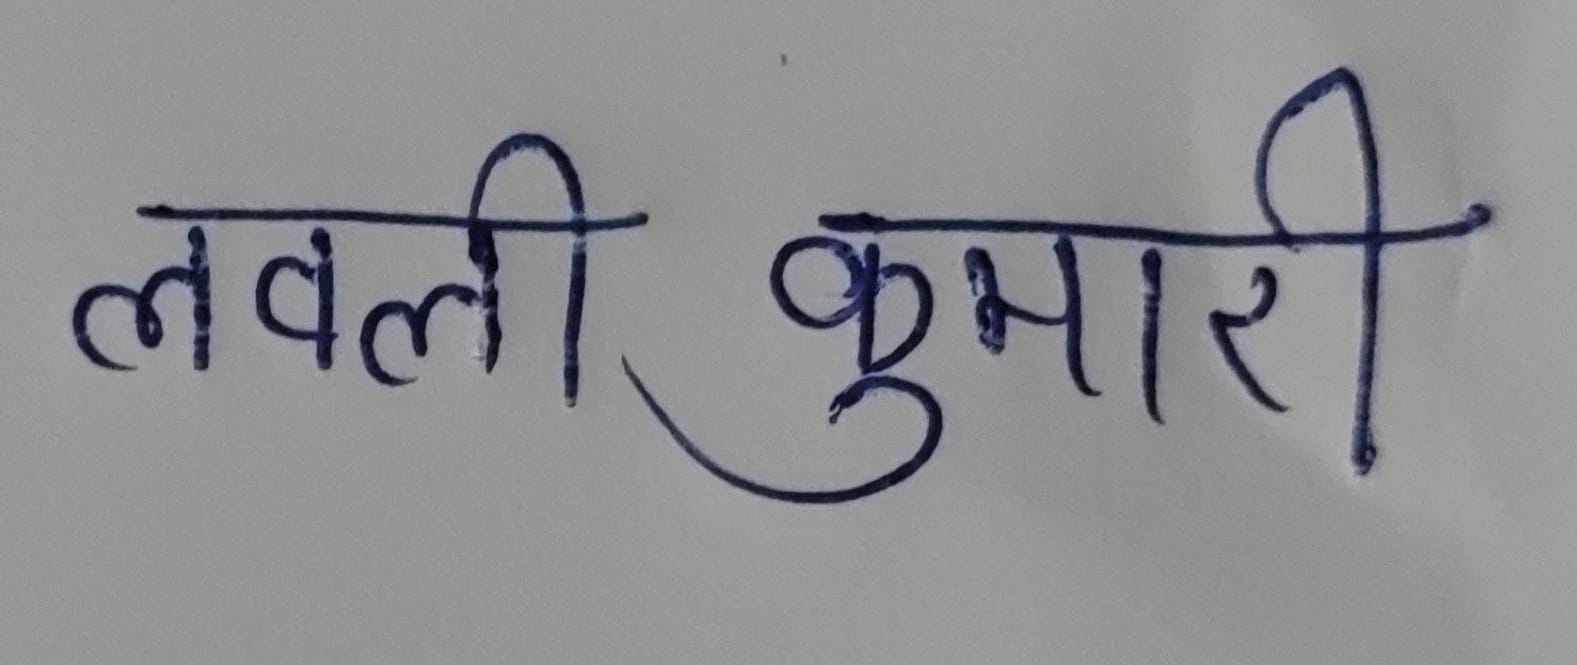 लवली कुमारी